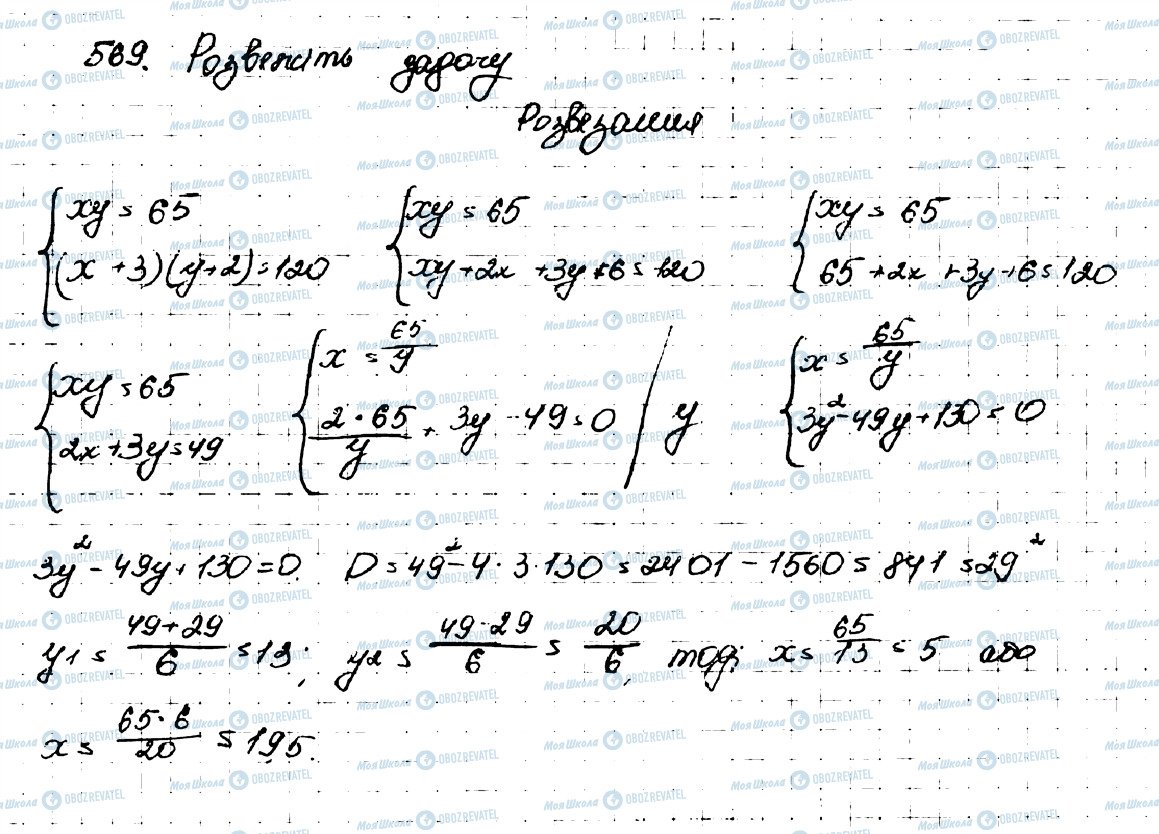 569. Розвежіть задачу
Розвезання
{ xy = 65
(x + 3)(y+2) = 120
{ xy = 65
xy + 2x + 3y + 6 = 120
{ xy = 65
65 + 2x + 3y + 6 = 120
{ xy = 65
2x + 3y = 49
{ x = 65/y
2·65/y + 3y - 49 = 0 / y
{ x = 65/y
3y² - 49y + 130 = 0
3y² - 49y + 130 = 0. D = 49² - 4·3·130 = 2401 - 1560 = 841 = 29²
y1 = (49+29)/6 = 13; y2 = (49-29)/6 = 20/6, тоді x = 65/13 = 5 або
x = 65·6/20 = 19,5.